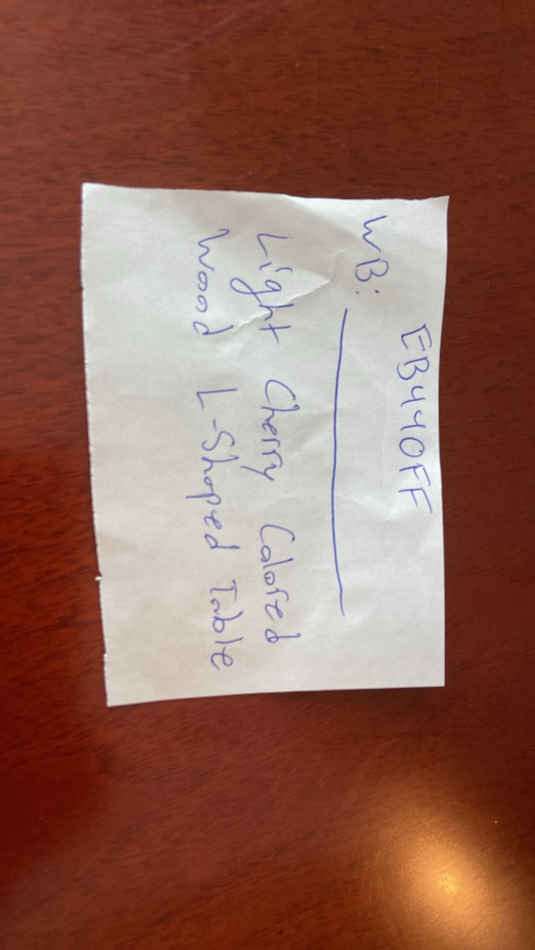 EB440FF
WB:
Light Cherry Colored
Wood L-Shaped Table